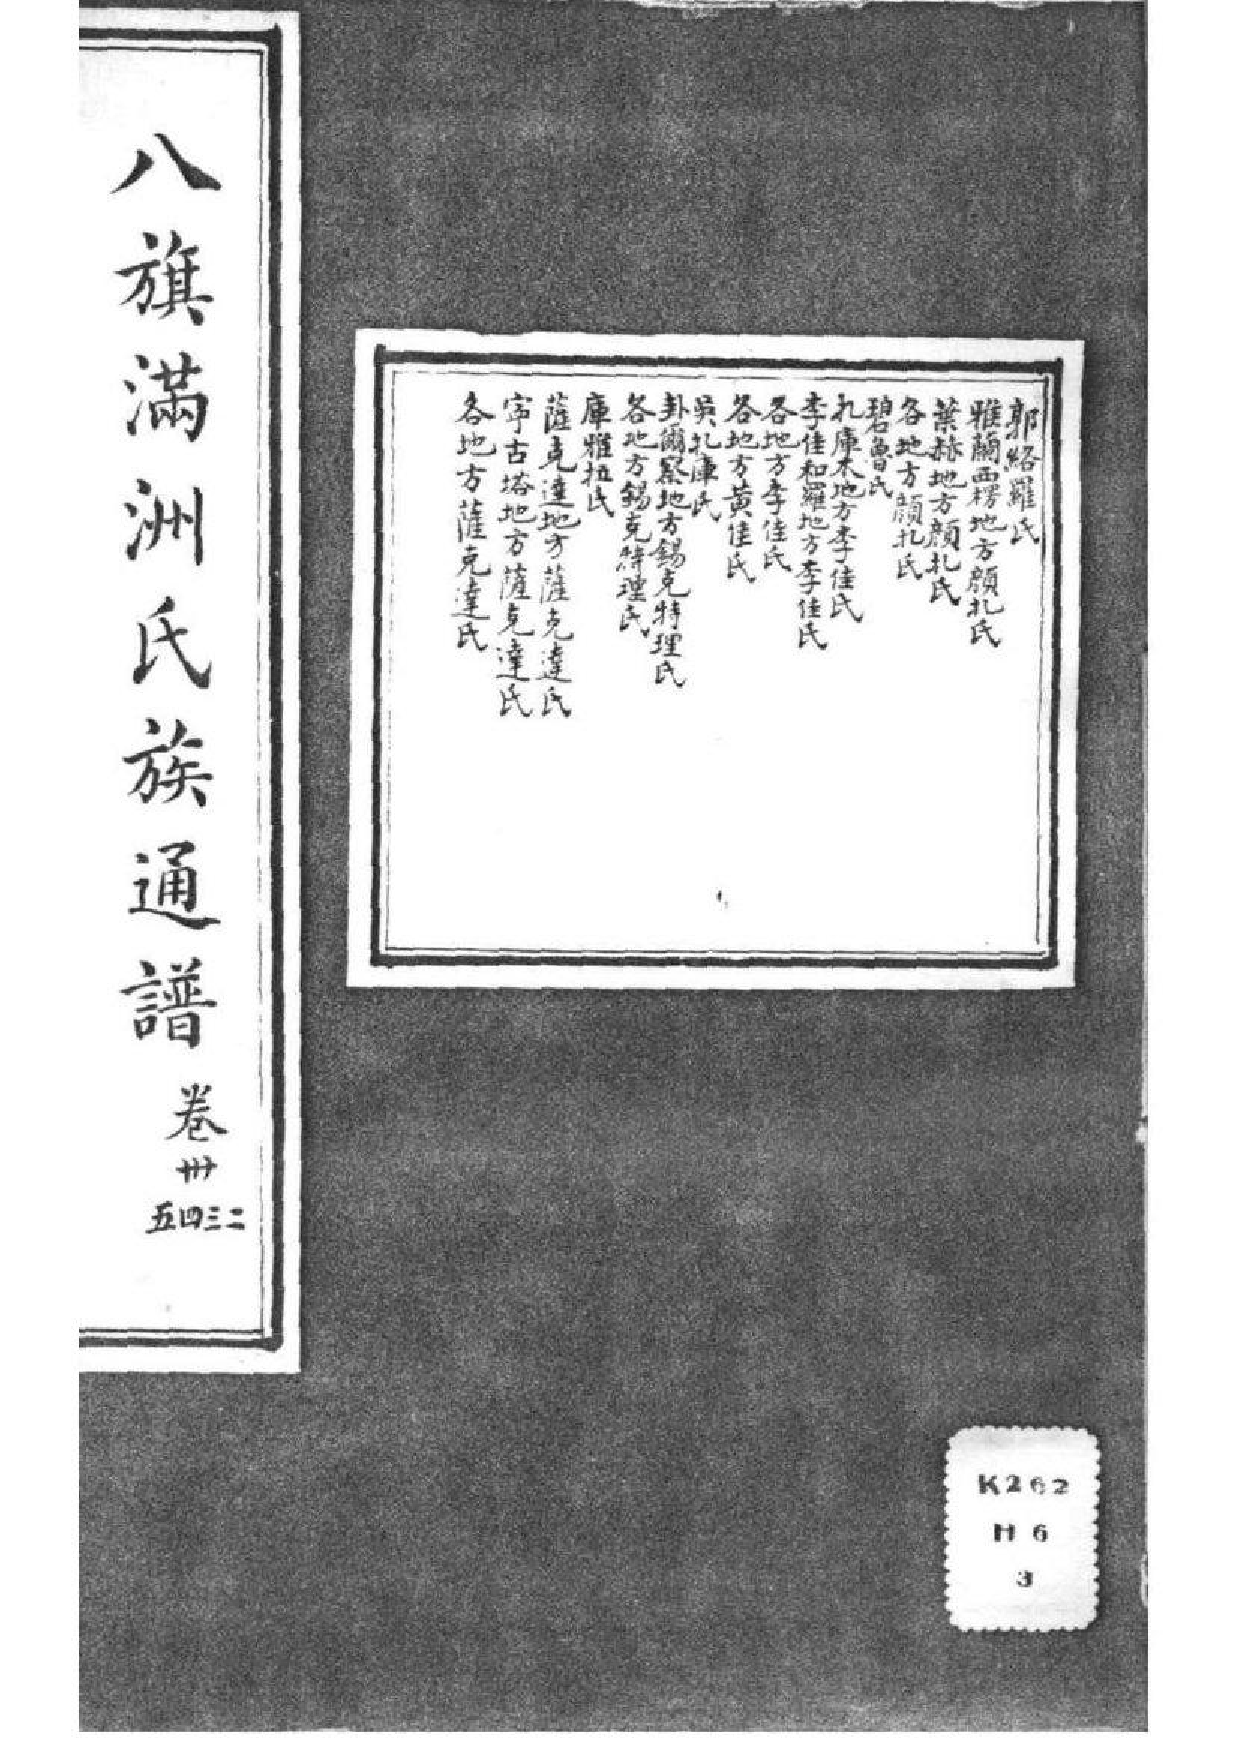 八旗滿洲氏族通譜
卷卅
二三四五
郭絡羅氏
雅蘭西楞地方顏扎氏
葉赫地方顏扎氏
各地方顏扎氏
碧魯氏
扎庫木地方李佳氏
李佳和羅地方李佳氏
各地方李佳氏
各地方黃佳氏
吳扎庫氏
卦爾察地方錫克特理氏
各地方錫克特理氏
庫雅拉氏
薩克達地方薩克達氏
寧古塔地方薩克達氏
各地方薩克達氏
K262
H6
3